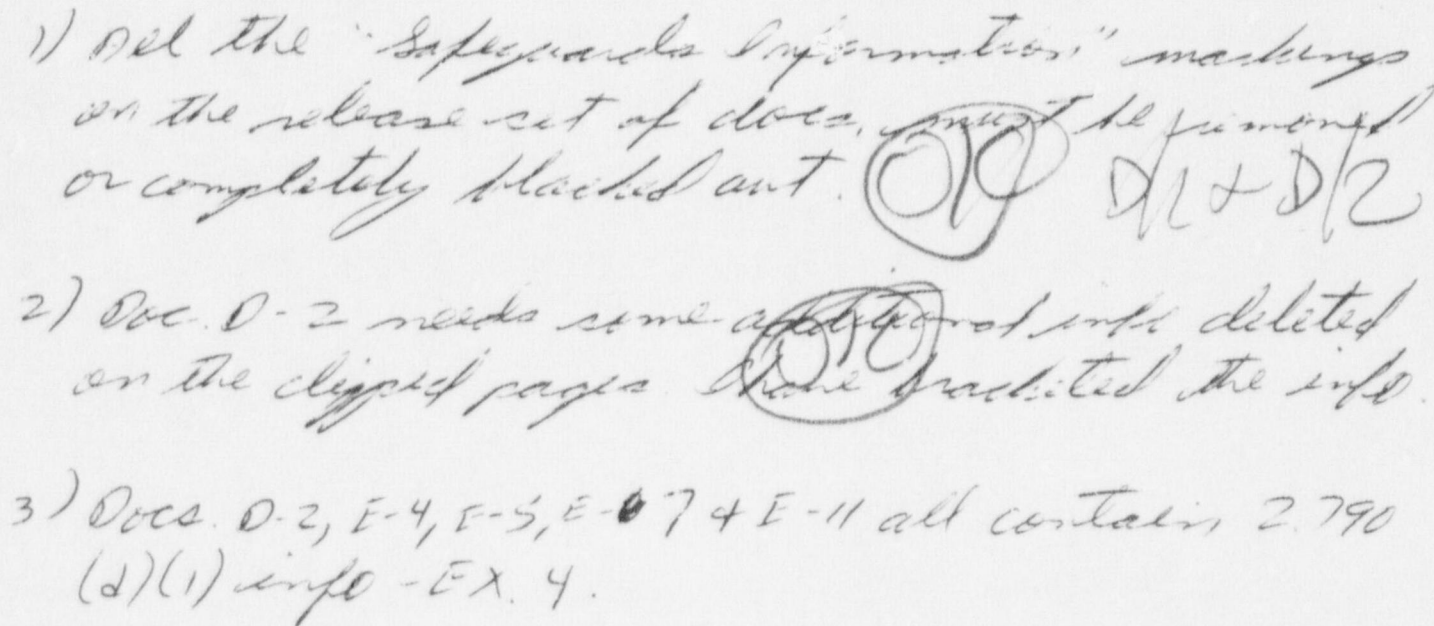 1) All the "Safeguards Information" markings
on the release set of docs, must be removed
or completely blacked out. D/1 & D/2
2) Doc. D-2 needs some additional info deleted
on the clipped pages. I have bracketed the info.
3) Docs. D-2, E-4, E-5, E-7 & E-11 all contain 2.790
(d)(1) info - EX. 4.